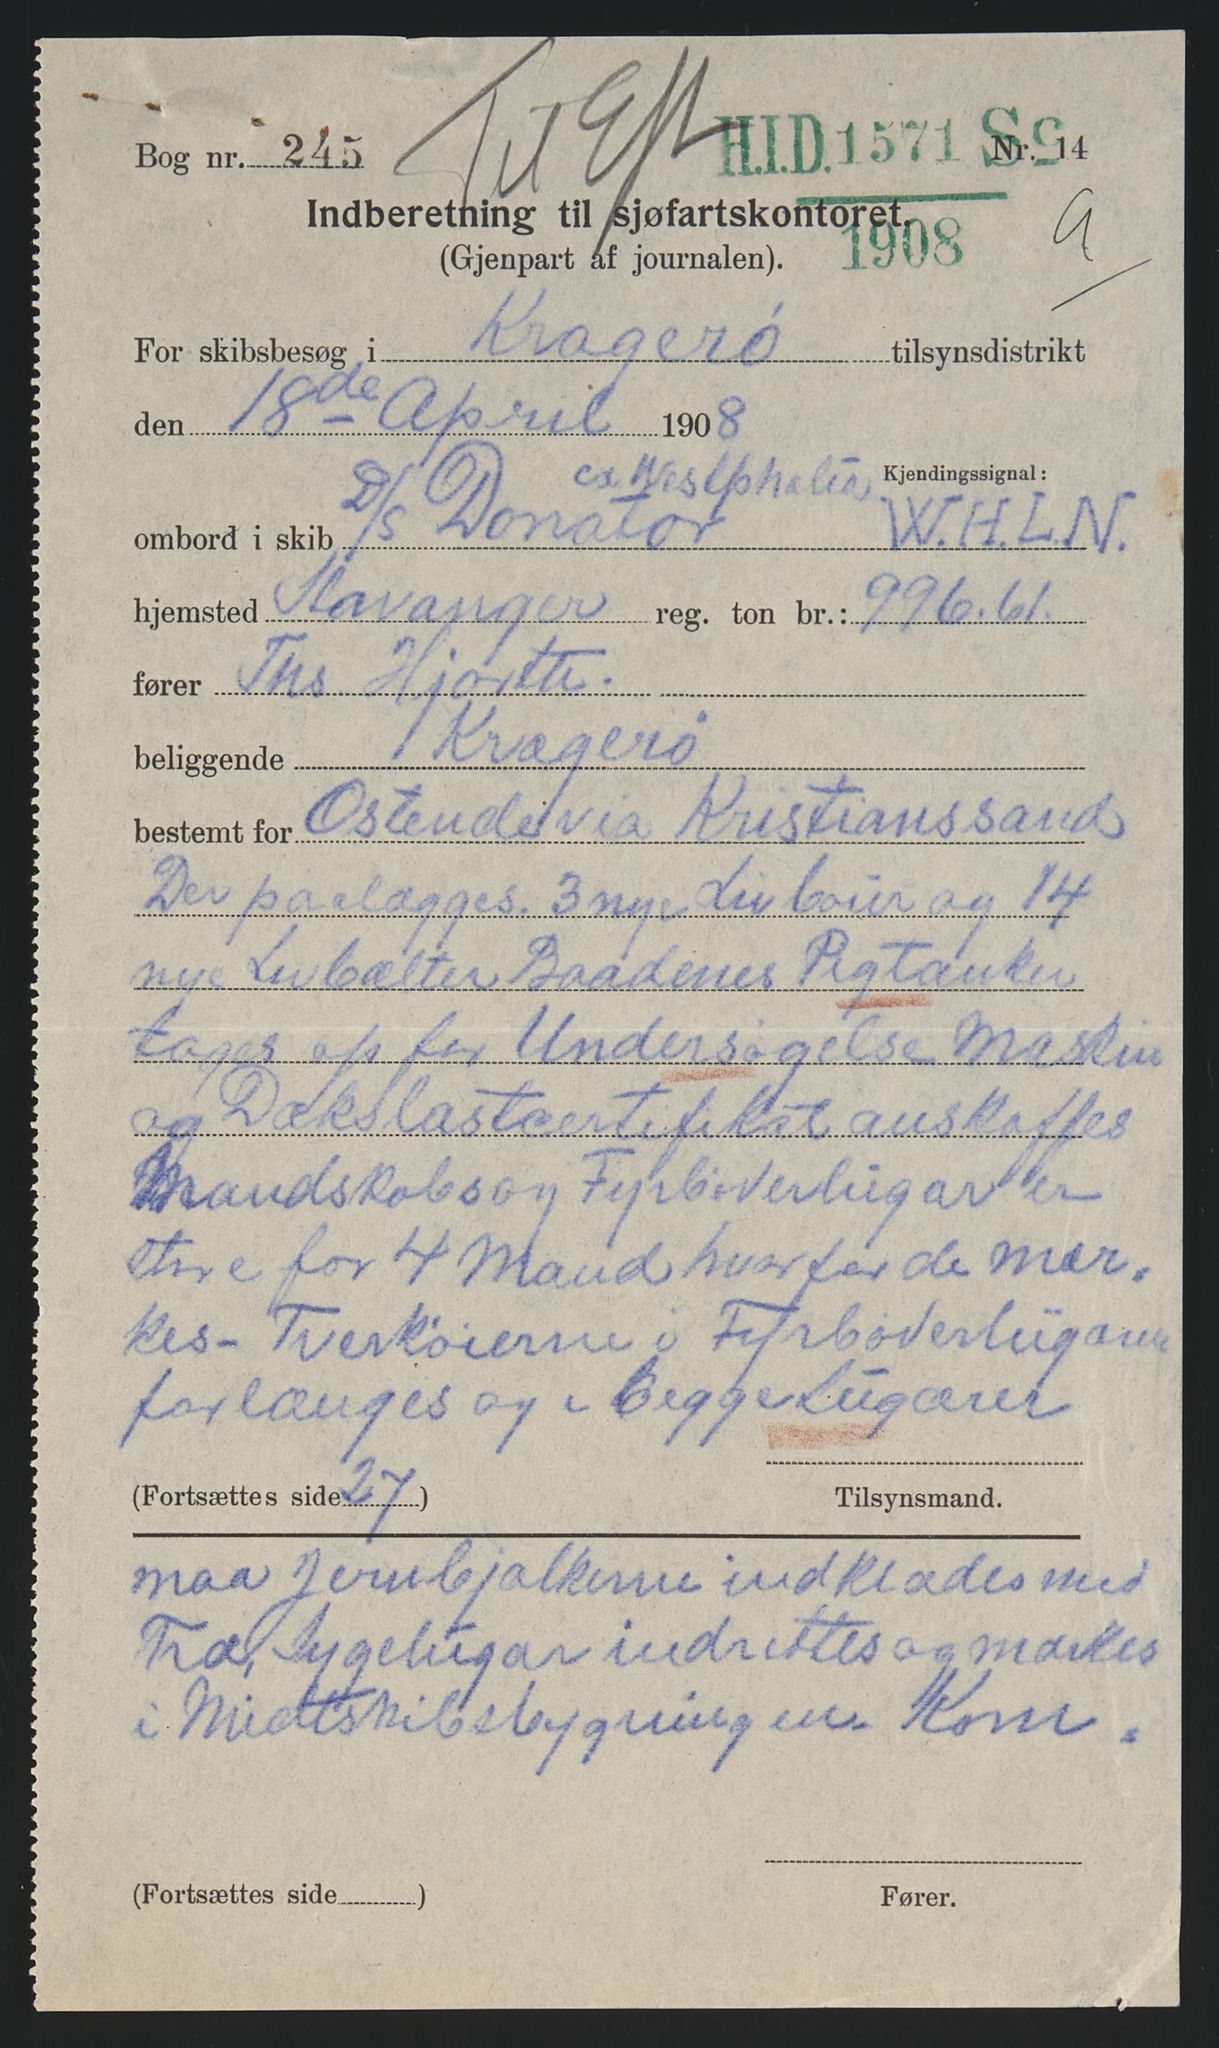 Til Eft
H.I.D. 1571 Sc
1908
Bog nr. 245
Nr. 14
Indberetning til sjøfartskontoret.
a
(Gjenpart af journalen).
For skibsbesøg i Kragerö tilsynsdistrikt
den 18de April 1908
ex Westphalia Kjendingssignal:
ombord i skib D/S Donator W.H.L.N.
hjemsted Stavanger reg. ton br.: 996.61.
fører Ths Hjorth.
beliggende Kragerö
bestemt for Ostende via Kristianssand
Der paalægges. 3 nye Livböier og 14
nye Livbælter Baadenes Pigtanker
tages op for Undersögelse Maskin
og Dækslastcertifikat anskaffes
Mandskabs og Fyrböderlugar er
store for 4 Mand hvorfor de mær-
kes - Tverköierne i Fyrböderlugaren
forlænges og i begge Lugarer
(Fortsættes side 27)
Tilsynsmand.
maa Jernbjælkerne indklædes med
Træ, Sygelugar indrettes og mærkes
i Midtskibsbygningen. Kom.
(Fortsættes side )
Fører.